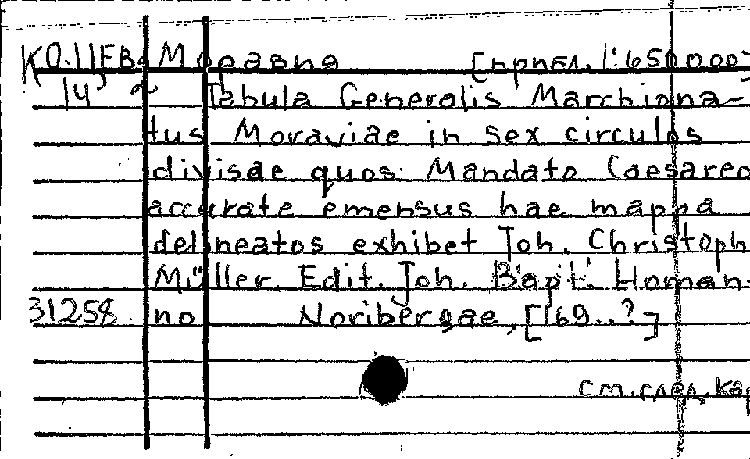 КО.11ЕВ4 Моравия [прибл. 1:650000
14 Tabula Generalis Marchiona-
tus Moraviae in sex circulos
divisae quos Mandato Caesareo
accurate emensus hae mappa
delineatos exhibet Joh. Christoph
Müller. Edit. Joh. Bapt. Homan-
31258 no Noribergae, [169..?]
см. след. кар